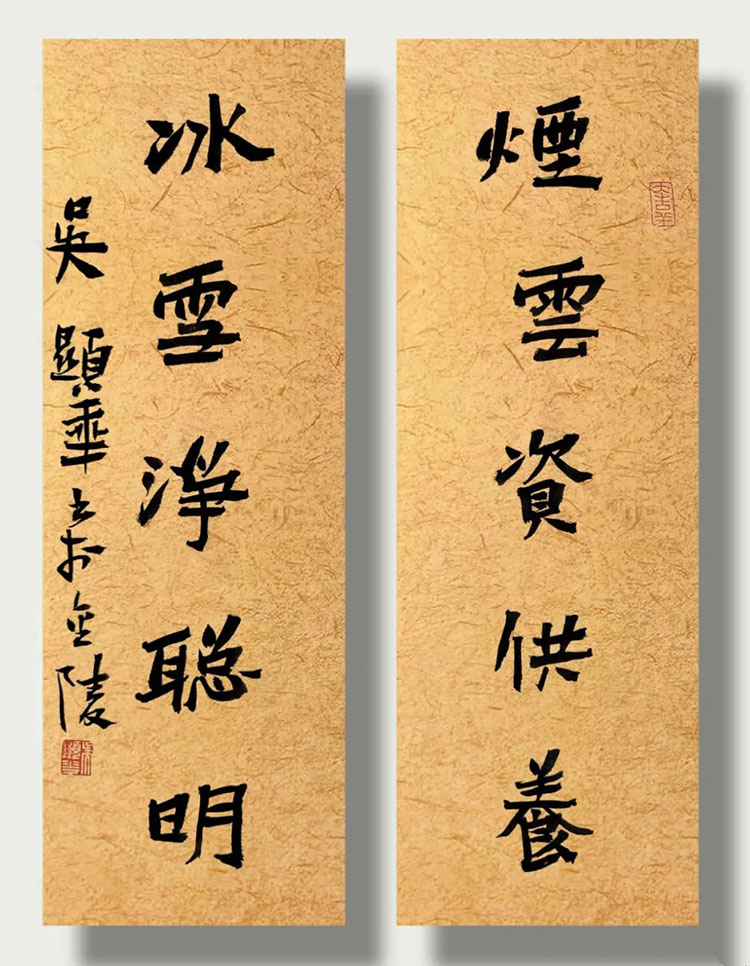 煙雲資供養
冰雪淨聰明
吳顯華書於金陵